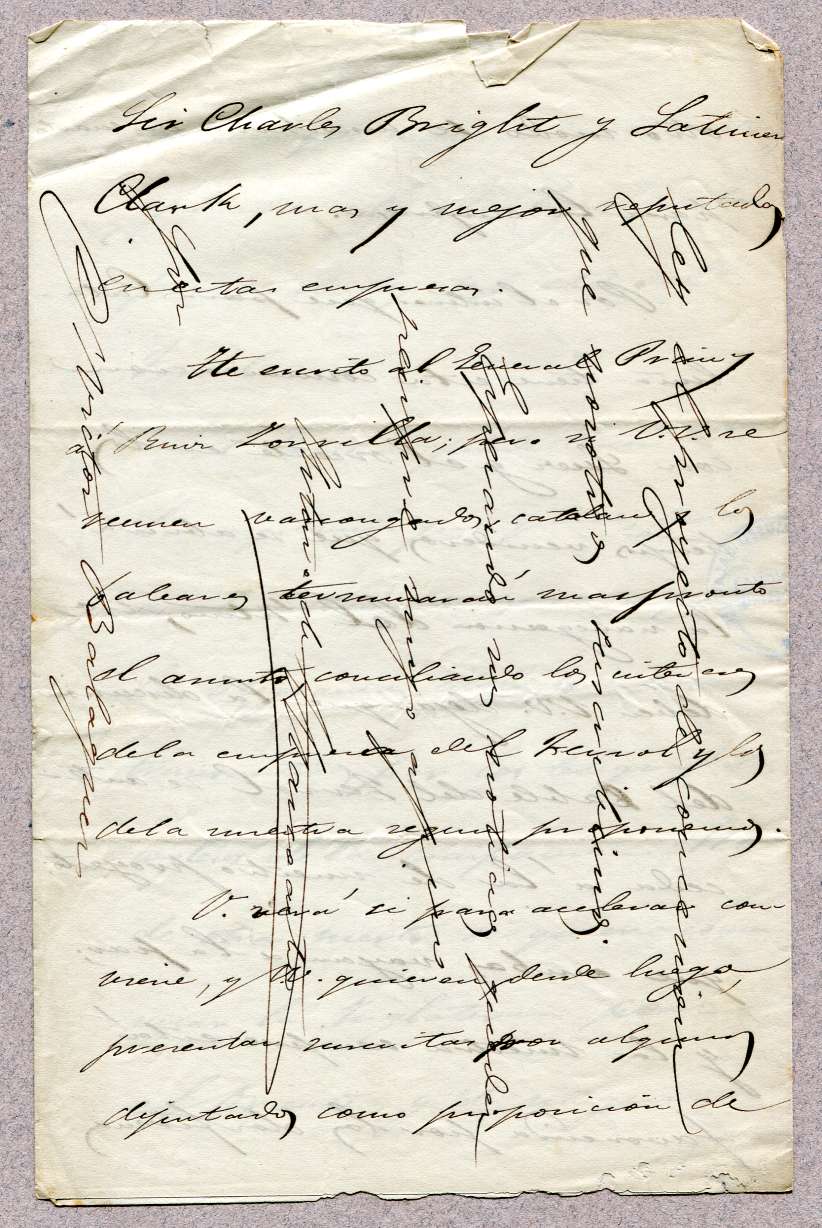 Sir Charles Bright y Latimer
Clark, mas y mejor reputados
en estas empresas.
He escrito al General Prim y
á Ruiz Zorrilla; pero si V.V. se
reunen vascongados, catalanes y los
baleares terminarán mas pronto
el asunto, conciliando los intereses
de la empresa del Ferrol y los
de la nuestra segun proponemos.
V. verá si para acelerar con-
viene, y VV. quieren, desde luego,
presentar suscritas por algunos
diputados como proposición de
ley el proyecto de concesión
que nosotros suscribimos.
Esperando sus noticias queda
siempre suyo afmo
Antonio de
Sor
D. Víctor Balaguer